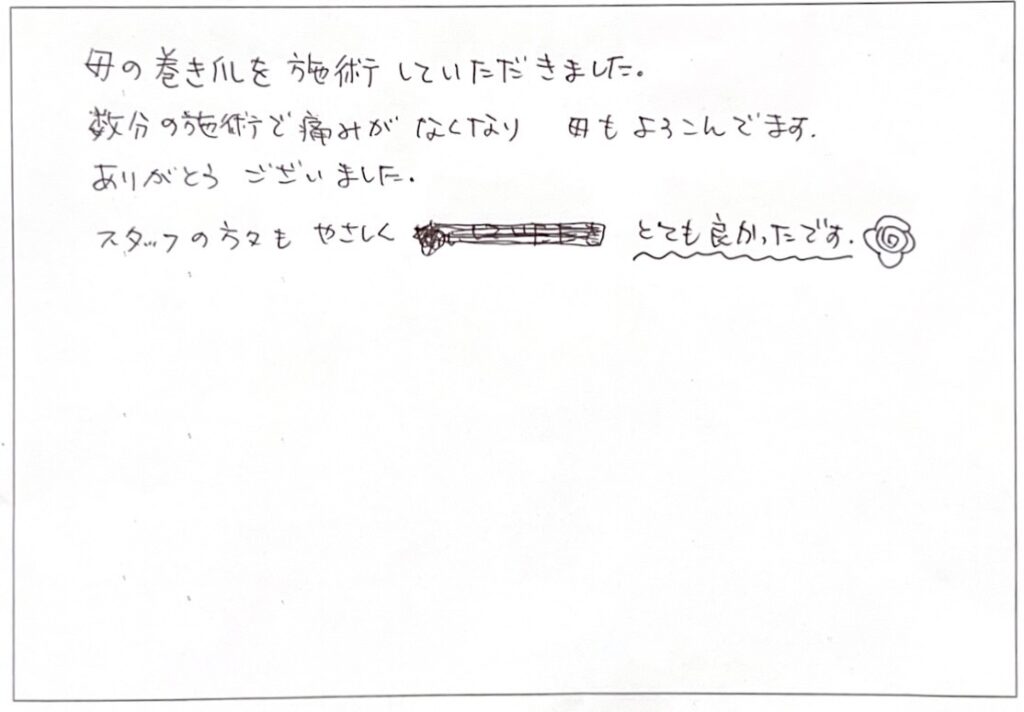 母の巻き爪を施術していただきました。
数分の施術で痛みがなくなり 母もよろこんでます。
ありがとう ございました。
スタッフの方々も やさしく とても良かったです。